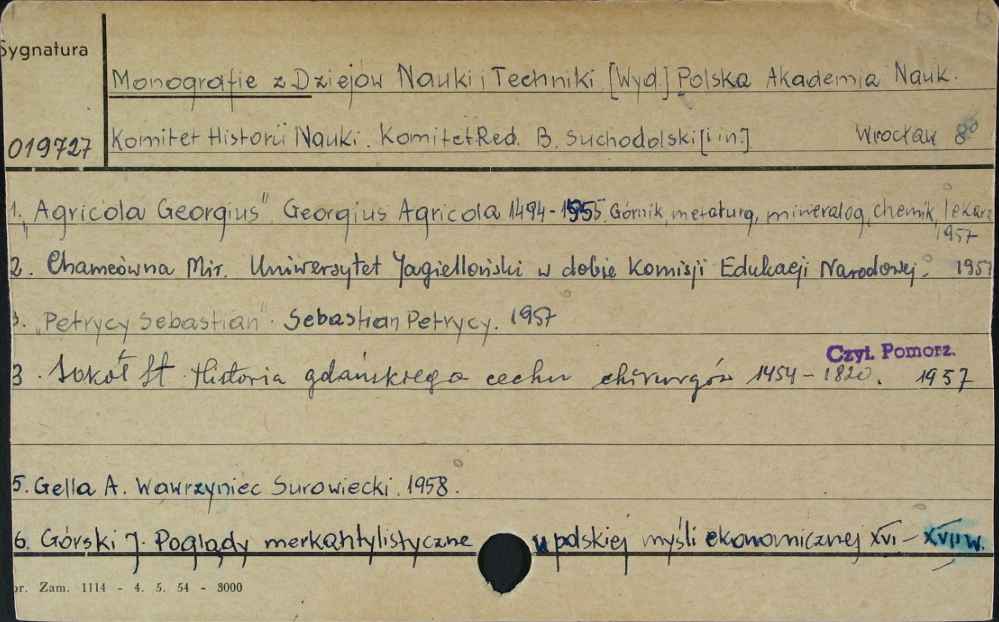 Sygnatura
Monografie z Dziejów Nauki i Techniki [Wyd.] Polska Akademia Nauk.
019727 Komitet Historii Nauki. Komitet Red. B. Suchodolski [i in.] Wrocław 8°
1. „Agricola Georgius" Georgius Agricola 1494-1555. Górnik, metalurg, mineralog, chemik, lekarz
1957
2. Chamcówna Mir. Uniwersytet Jagielloński w dobie Komisji Edukacji Narodowej. 1957
3. „Petrycy Sebastian". Sebastian Petrycy. 1957
Czyt. Pomorz.
3. Sokół St. Historia gdańskiego cechu chirurgów 1454-1820. 1957
5. Gella A. Wawrzyniec Surowiecki. 1958.
6. Górski J. Poglądy merkantylistyczne w polskiej myśli ekonomicznej XVI-XVII w.
pr. Zam. 1114 - 4. 5. 54 - 3000